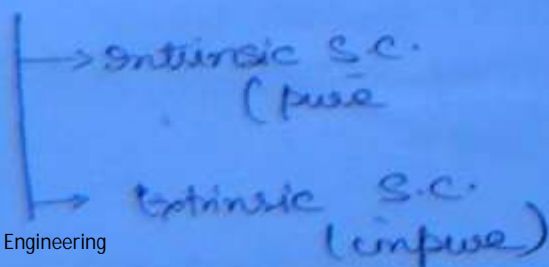 → Intrinsic S.C.
(pure
→ Extrinsic S.C.
(impure)
Engineering